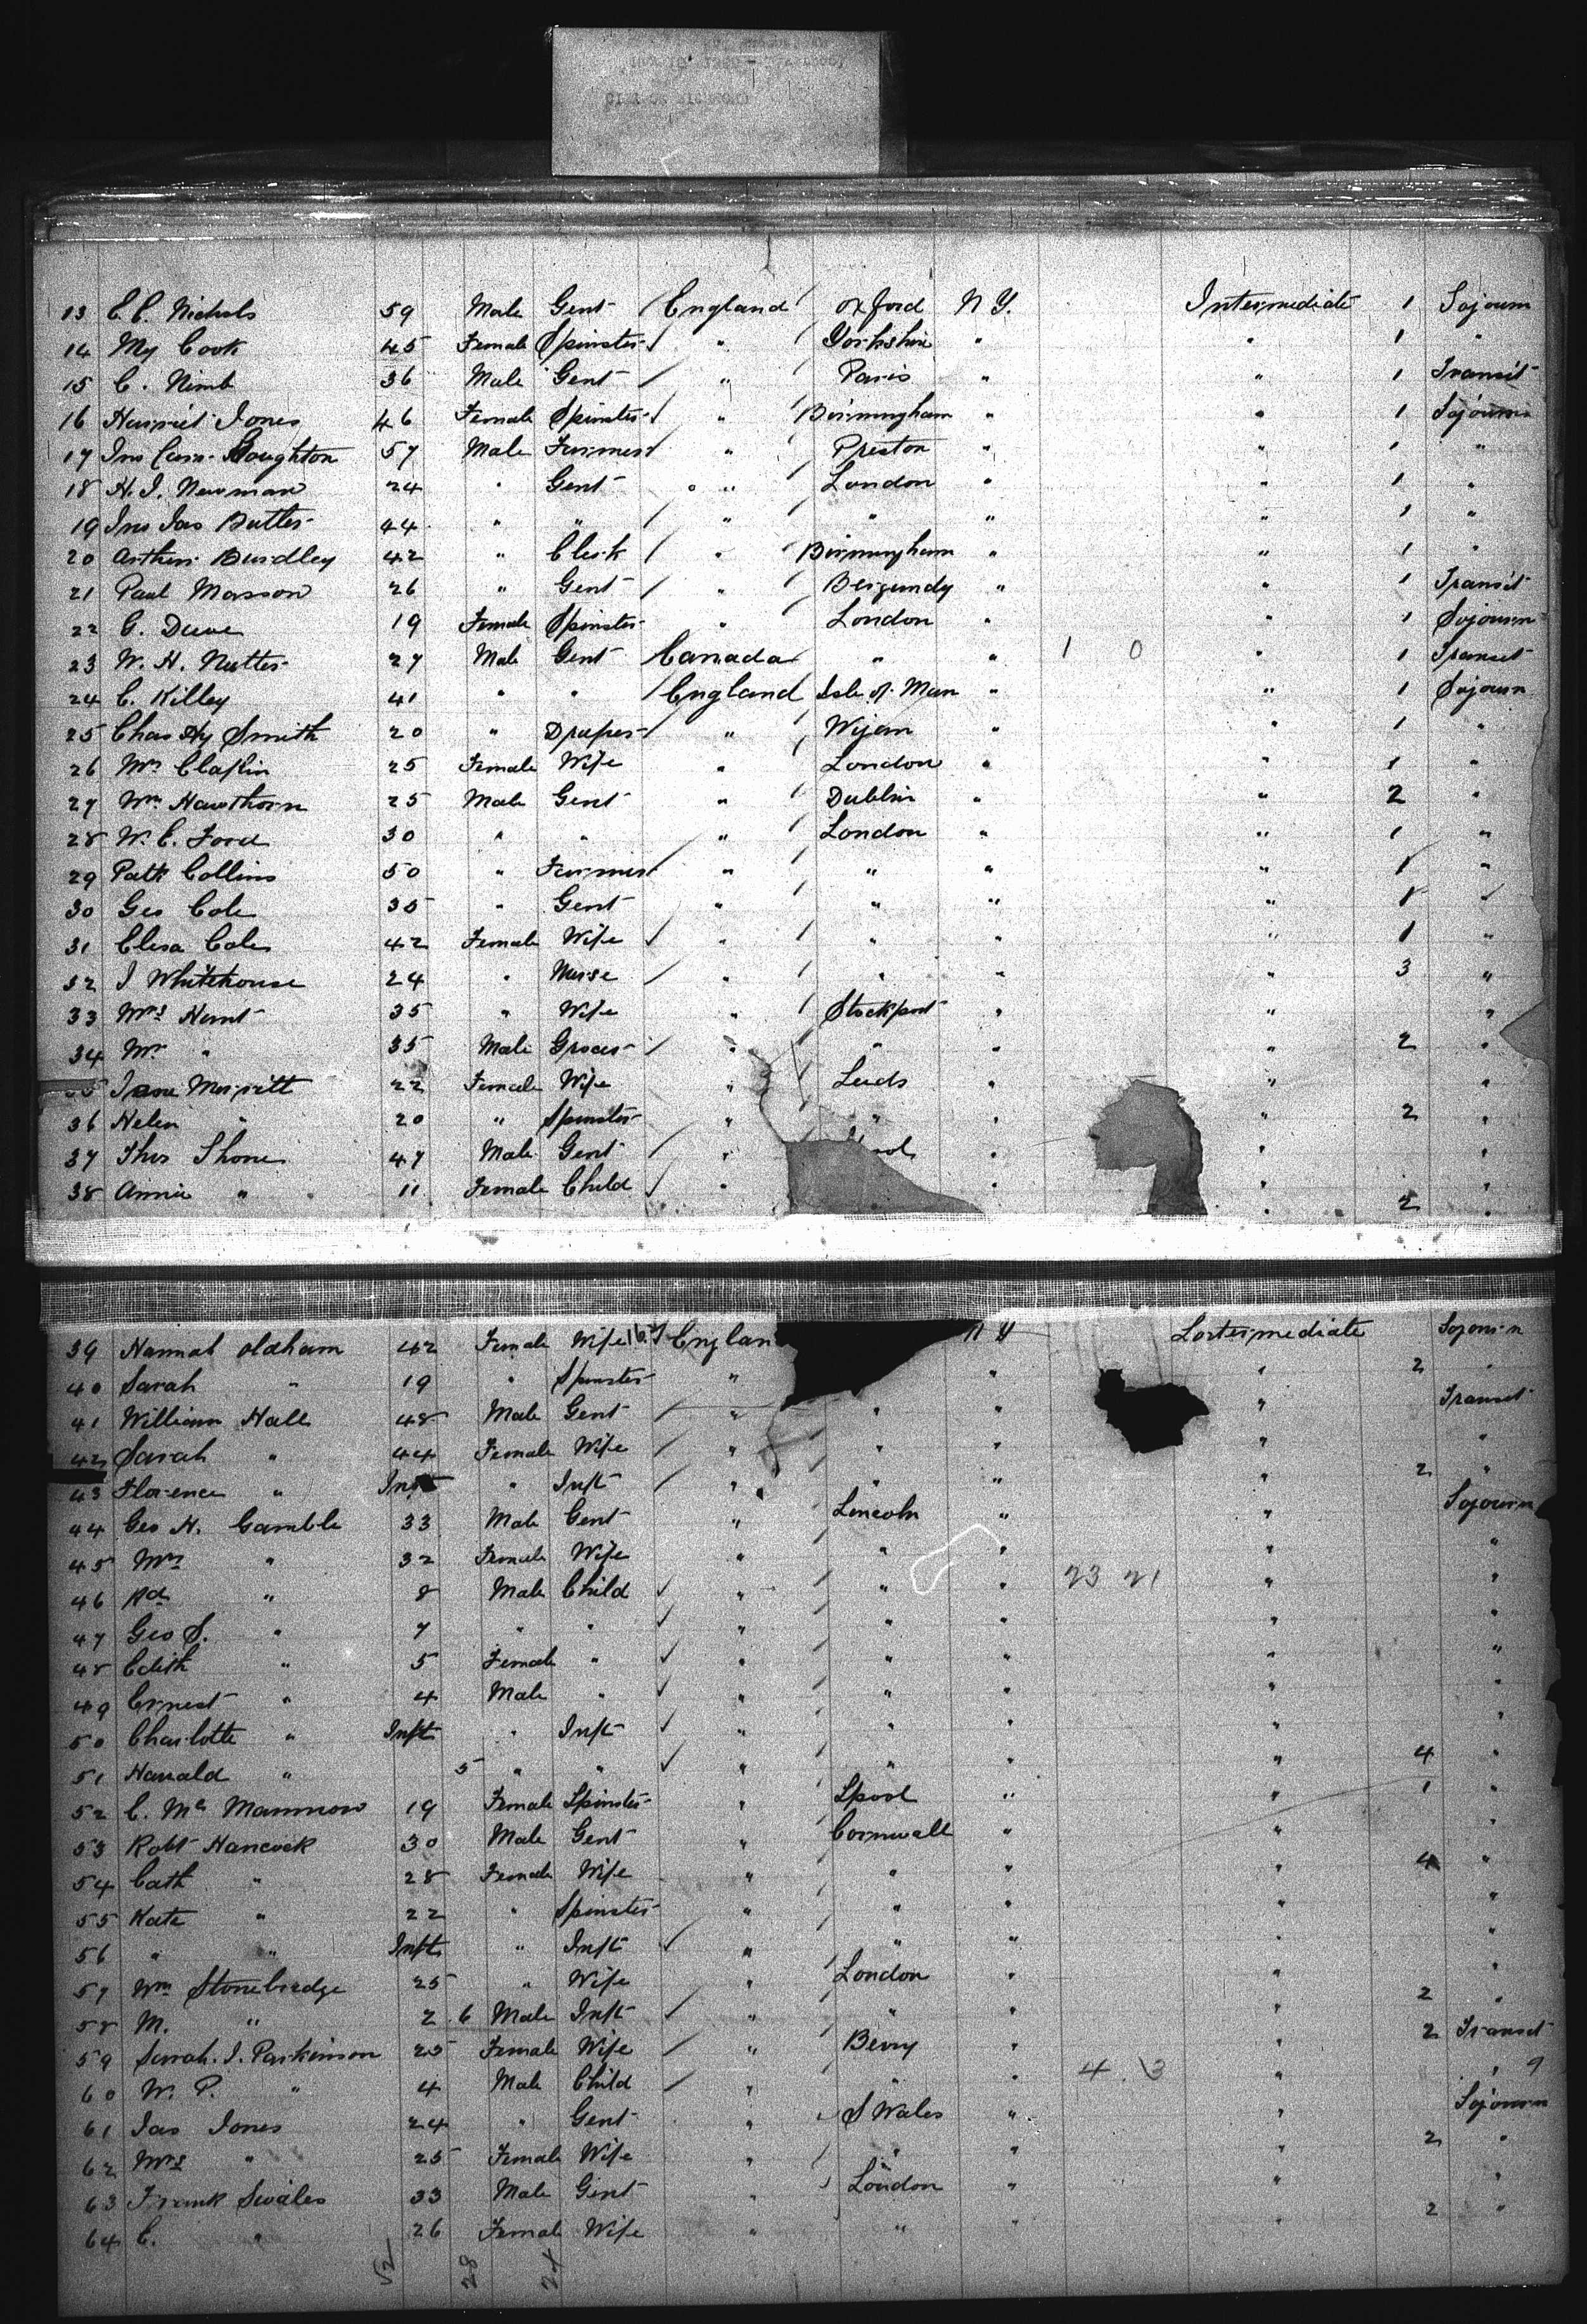 CITY OF RICHMOND
13 E. C. Nichols 59 Male Gent England Oxford N Y. Intermediate 1 Sojourn
14 My Cook 45 Female Spinster " Yorkshire " " 1 "
15 C. Nimb 36 Male Gent " Paris " " 1 Transit
16 Harriet Jones 46 Female Spinster " Birmingham " " 1 Sojourn
17 Jno Houghton 57 Male Farmer " Preston " " 1 "
18 H. J. Newman 24 " Gent " London " " 1 "
19 Jno Jas Butler 44 " " " " " " 1 "
20 Arthur Burdley 42 " Clerk " Birmingham " " 1 "
21 Paul Masson 26 " Gent " Bergundy " " 1 Transit
22 C. Duve 19 Female Spinster " London " " 1 Sojourn
23 W. H. Nutter 27 Male Gent Canada " " 1 0 " 1 Transit
24 C. Killey 41 " " England Isle of Man " " 1 Sojourn
25 Chas Hy Smith 20 " Draper " Wigan " " 1 "
26 Mrs Claflin 25 Female Wife " London " " 1 "
27 Wm Hawthorn 25 Male Gent " Dublin " " 2 "
28 W. E. Ford 30 " " " London " " 1 "
29 Patk Collins 50 " Farmer " " " " 1 "
30 Geo Cole 35 " Gent " " " " 1
31 Elesa Cole 42 Female Wife " " " " 1 "
32 J Whitehouse 24 " Nurse " " " " 3 "
33 Mrs Hunt 35 " Wife " Stockport " " "
34 Mr " 35 Male Grocer " " " " 2 "
Merritt 22 Female Wife " Leeds " " "
36 Helen " 20 " Spinster " " " " 2 "
37 Thos Shone 47 Male Gent " " " "
38 Annie " 11 Female Child " " " 2 "
39 Hannah Oldham 42 Female Wife Englan N Y Intermediate Sojourn
40 Sarah " 19 " Spinster " " " 2 "
41 William Hall 48 Male Gent " " " " Transit
42 Sarah " 44 Female Wife " " " " "
43 Florence " Inft " Inft " " " " 2 "
44 Geo H. Gamble 33 Male Gent " Lincoln " " Sojourn
45 Mrs " 32 Female Wife " " " " "
46 Rd " 8 Male Child " " " 23 21 " "
47 Geo S. " 7 " " " " " " "
48 Edith " 5 Female " " " " " "
49 Ernest " 4 Male " " " " " "
50 Charlotte " Inft " Inft " " " " "
51 Harald " 5 " " " " " " 4 "
52 C. Mc Mannnow 19 Female Spinster " Lpool " " 1 "
53 Robt Hancock 30 Male Gent " Cornwall " " "
54 Cath " 28 Female Wife " " " " 4 "
55 Kate " 22 " Spinster " " " " "
56 " " Inft " Inft " " " " "
57 Wm Stonebridge 25 " Wife " London " " "
58 M. " 2 6 Male Inft " " " " 2 "
59 Sarah. J. Parkinson 25 Female Wife " Berry " " 2 Transit
60 W. P. " 4 Male Child " " " 4 . 3 " " 9
61 Jas Jones 24 " Gent " S Wales " " Sojourn
62 Mrs " 25 Female Wife " " " " 2 "
63 Frank Swales 33 Male Gent " London " " "
64 C. " 26 Female Wife " " " " 2 "
52 28 24